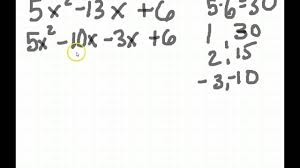 5x² -13x +6
5x² -10x -3x +6
5·6=30
1 30
2, 15
-3,-10